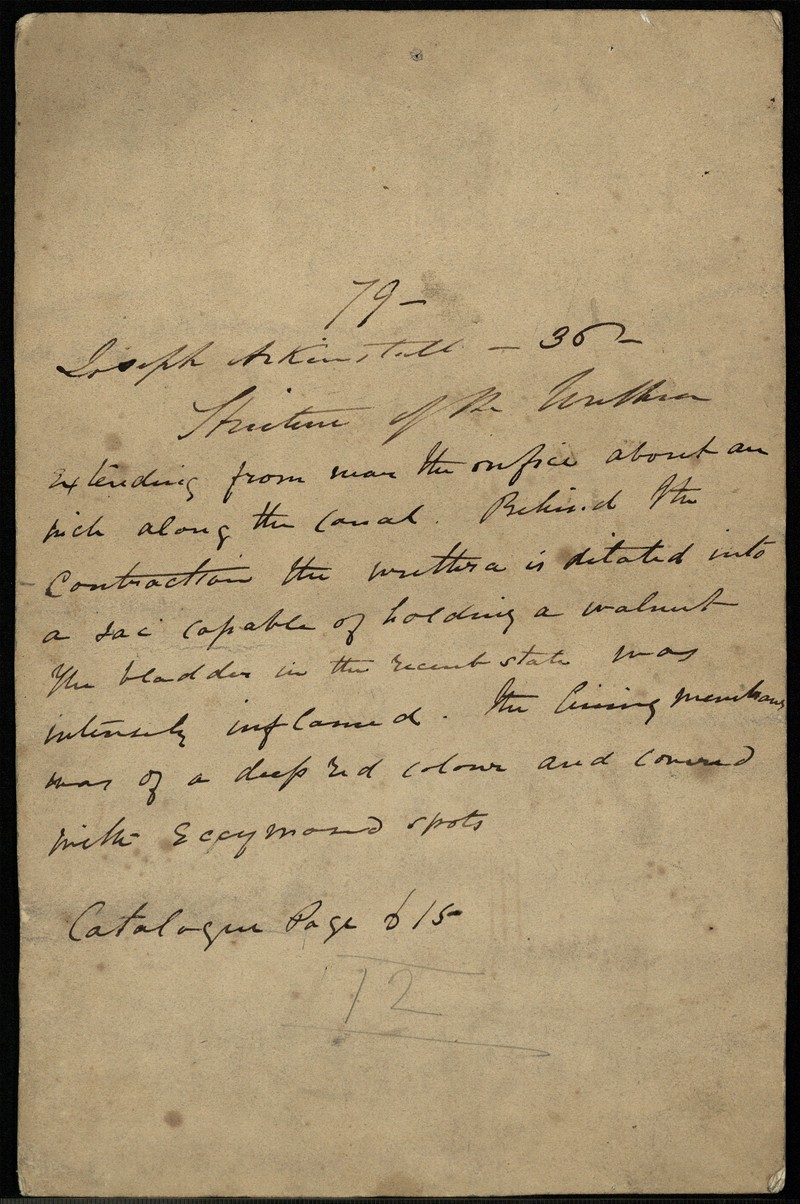 79-
Joseph Arkinstall - 36-
Stricture of the Urethra
extending from near the orifice about an
inch along the canal. Behind the
contraction the urethra is dilated into
a sac capable of holding a walnut
The bladder in the recent state was
intensely inflamed. The lining membrane
was of a deep red colour and covered
with Eccymosed spots
Catalogue Page 615
12